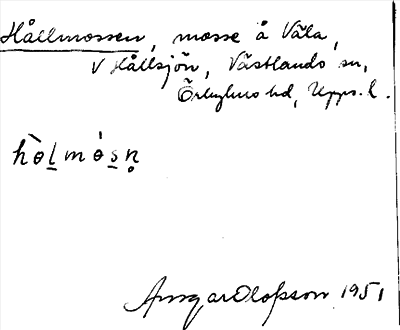 Hållmossen, mosse å Väla,
V Hållsjön, Västlands sn,
Örbyhus hd, Upps. l.
hòl̲mós̲n̥
Ansgar Olofsson 1951